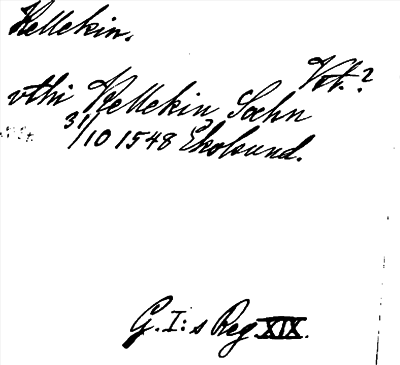 Kellekin.
Vt.?
vthi Kellekin Sochn
31/10 1548 Ekolsund.
G. I:s Reg. XIX.